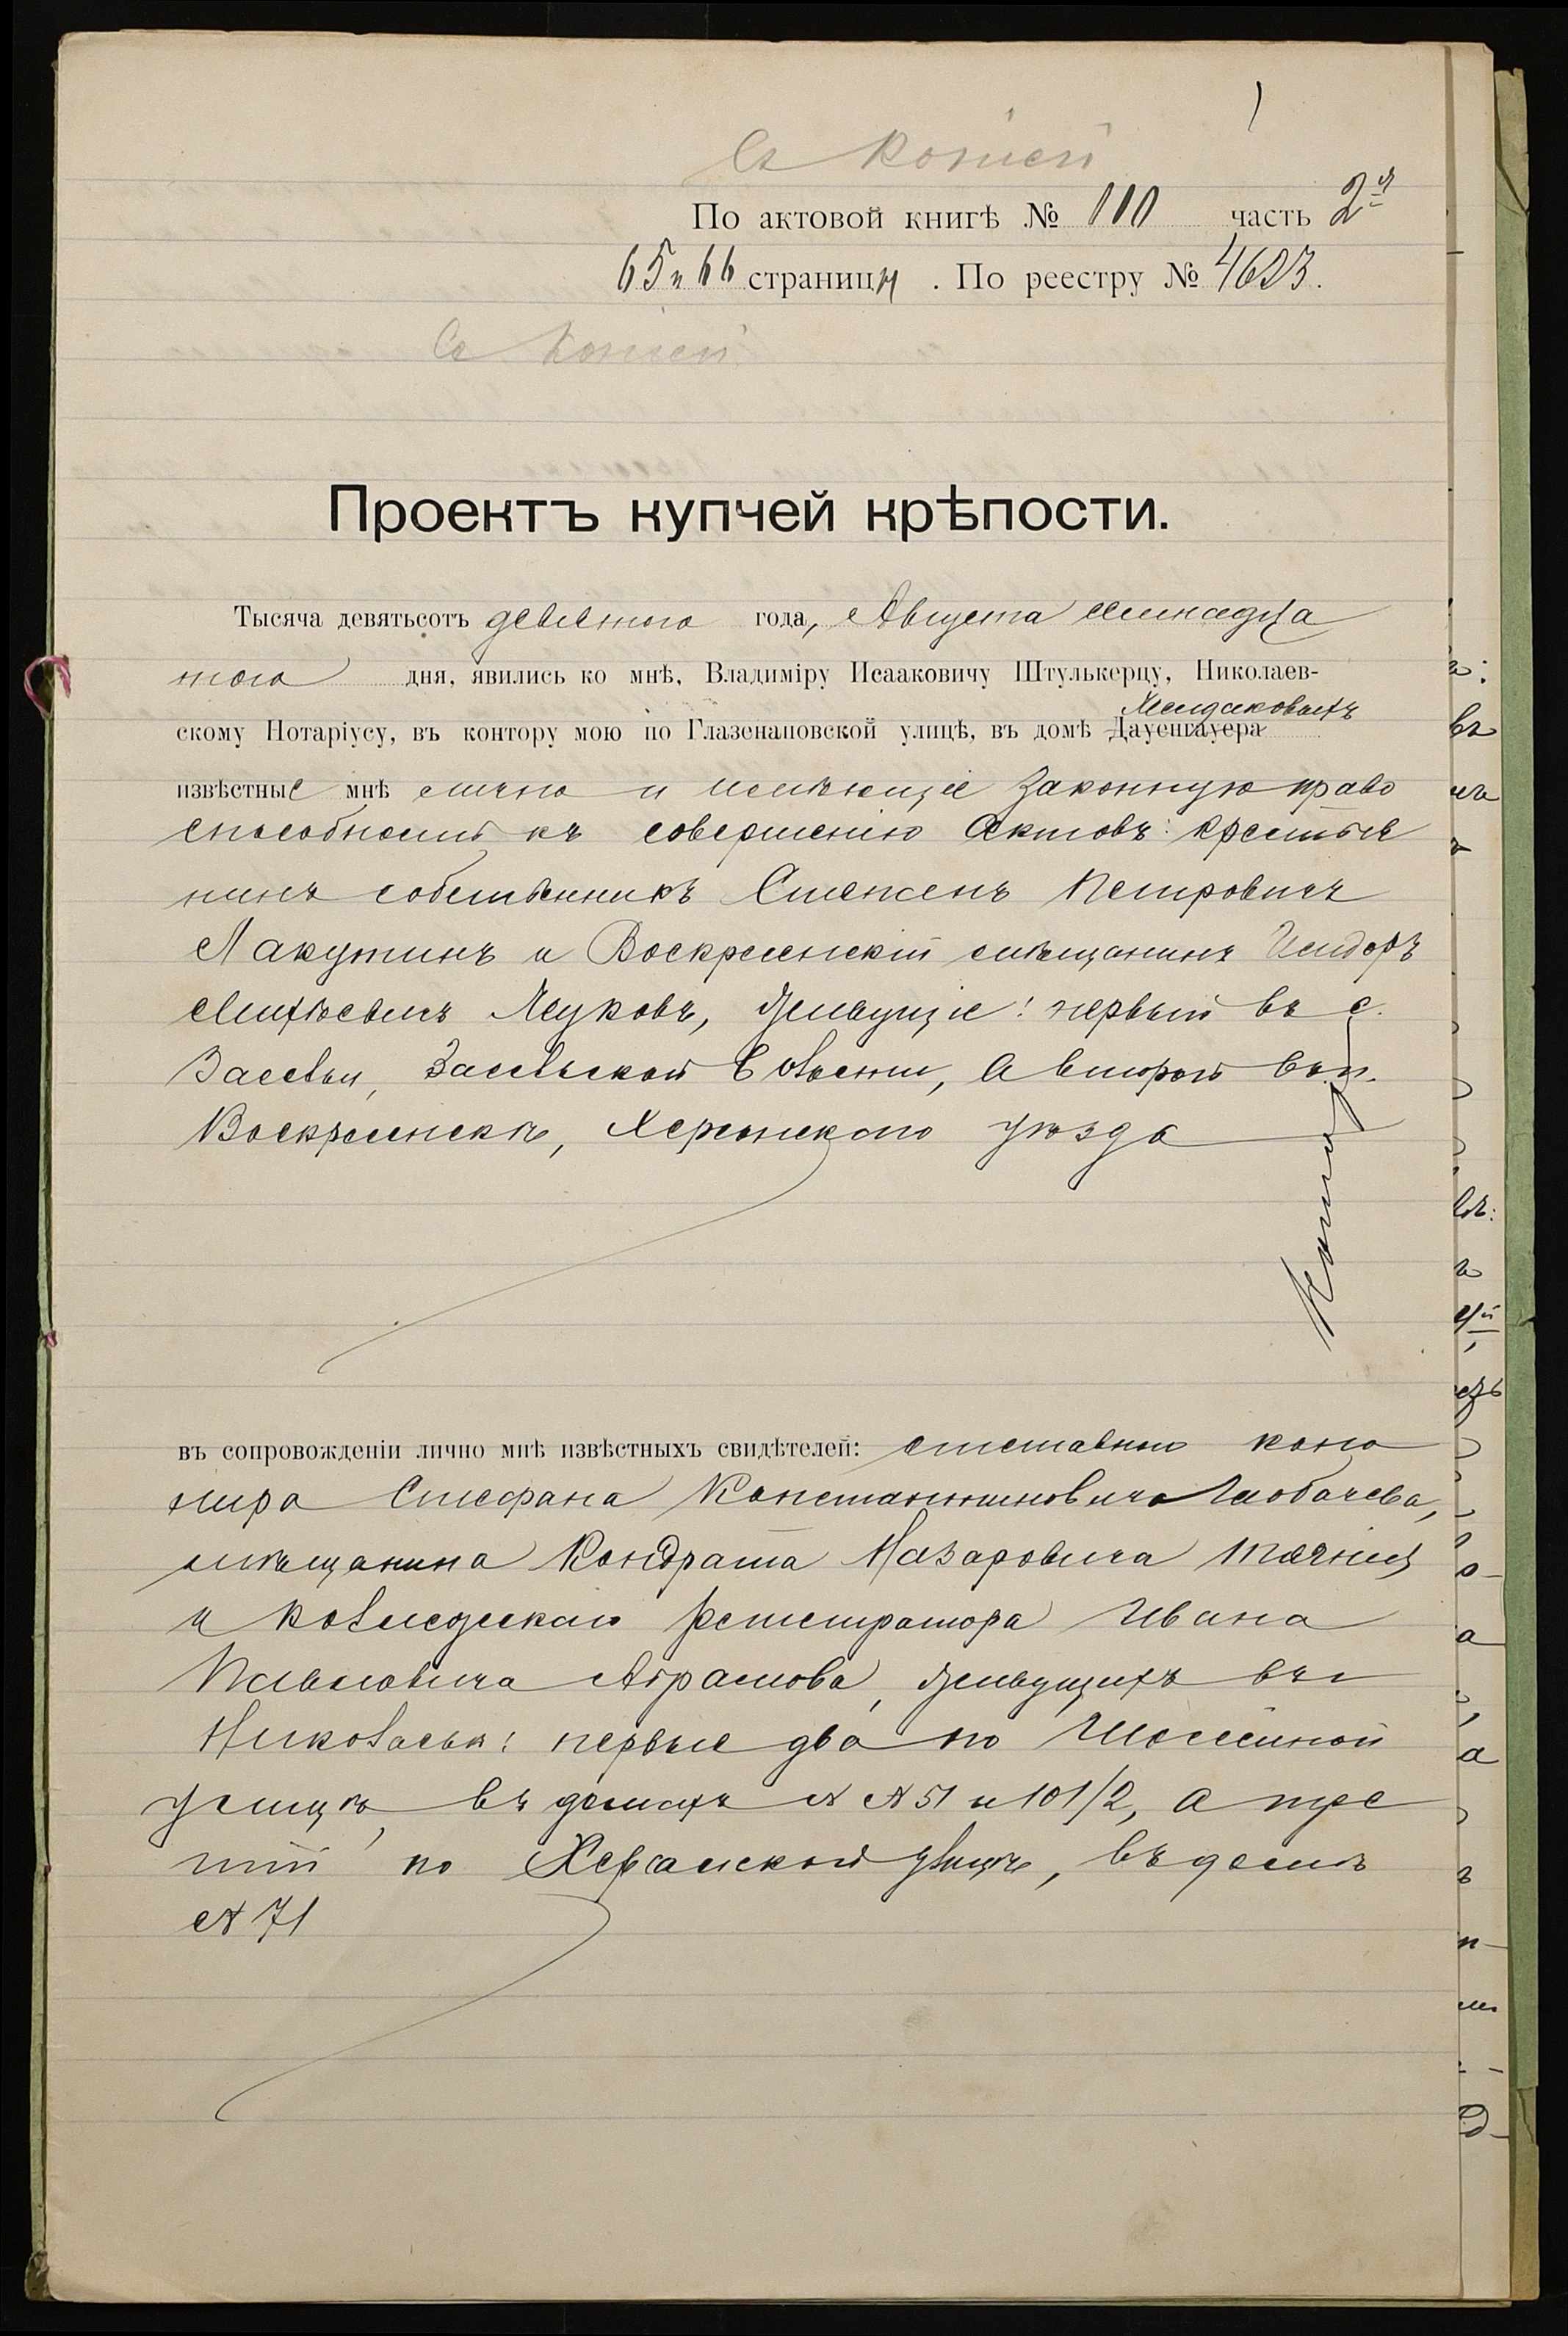 Съ копіей
По актовой книгѣ № 110 часть 2я
65 и 66 страницы . По реестру № 4623.
Съ копіей
Проектъ купчей крѣпости.
Тысяча девятьсотъ девятого года, Августа
того дня, явились ко мнѣ, Владиміру Исааковичу Штулькерцу, Николаев-
скому Нотаріусу, въ контору мою по Глазенаповской улицѣ, въ домѣ Дауенгауера
извѣстные мнѣ лично и имѣющіе законную право
способность къ совершенію актовъ: крестья
нинъ собственникъ Степенъ Петровичъ
Лакутинъ и Воскресенскій мѣщанинъ Исидоръ
Жуковъ, живущіе: первый въ с.
Засельи, Засельской волости, а второй въ п.
Воскресенскѣ, Херсонскаго уѣзда
Копія
въ сопровожденіи лично мнѣ извѣстныхъ свидѣтелей: отставного кано
нира Стефана Константиновича Лобачева,
мѣщанина Кондрата Назаровича
и коллежскаго регистратора Ивана
Павловича Абрамова, живущихъ въ г
Николаевѣ: первые два по Шоссейной
улицѣ, въ домахъ № № 51 и 101/2, а тре
тій по Херсонской улицѣ, въ домѣ
№ 71